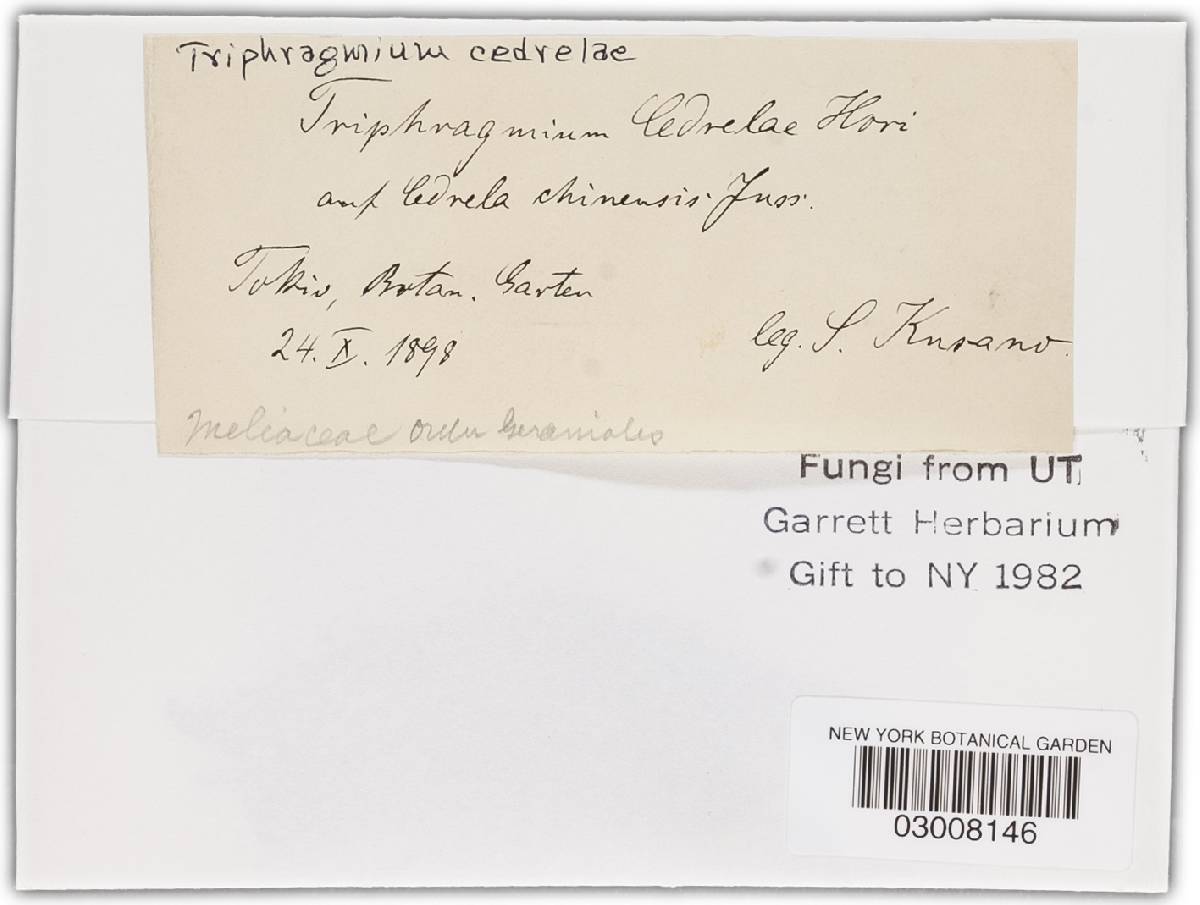 Triphragmium cedrelae
Triphragmium Cedrelae Hori
auf Cedrela chinensis Juss.
Tokio, Botan. Garten
24. X. 1898
leg. S. Kusano.
Meliaceae Order Geraniales
Fungi from UT
Garrett Herbarium
Gift to NY 1982
NEW YORK BOTANICAL GARDEN
03008146